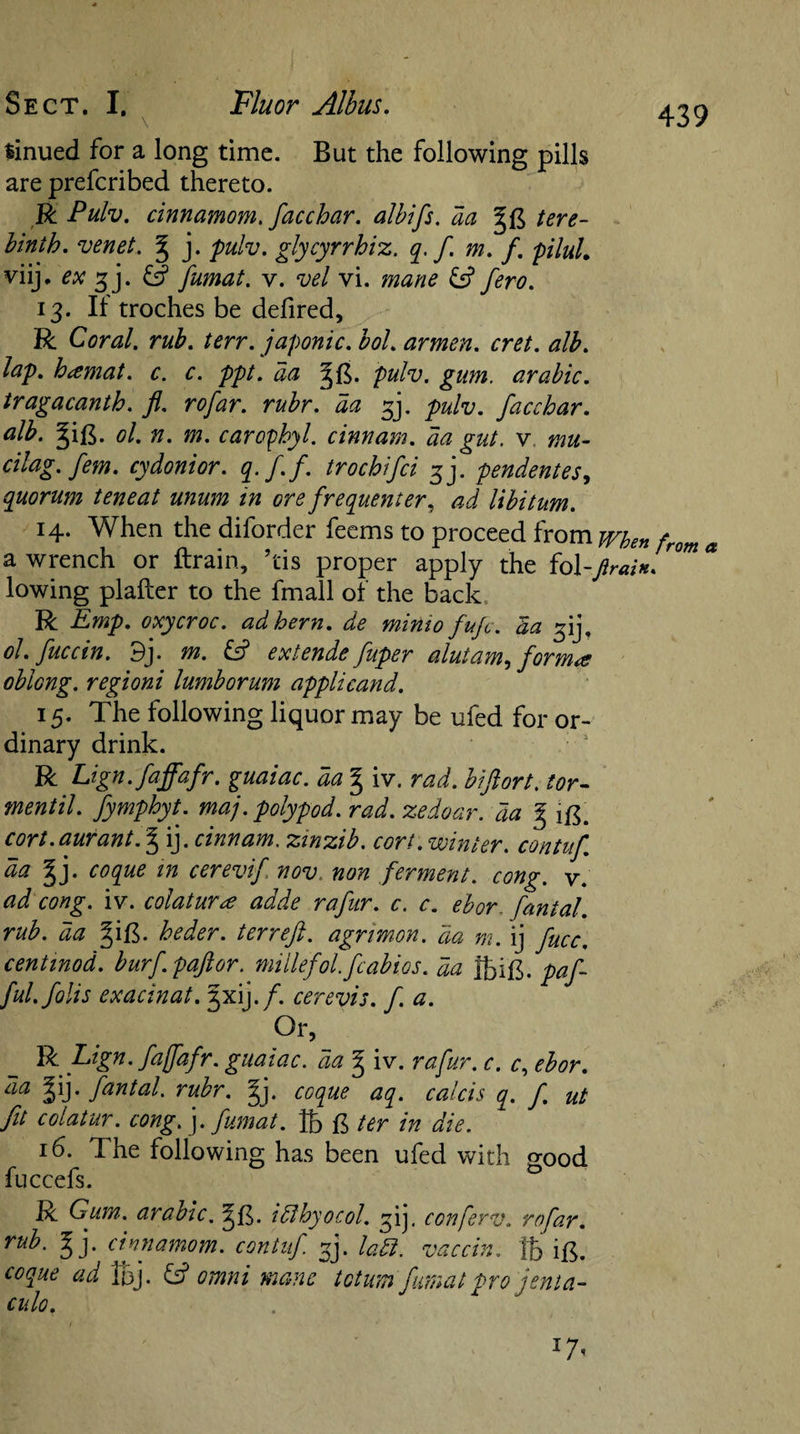 SECT. I. Fluor Albus. 439
tinued for a long time. But the following pills
are preſcribed thereto.
℞ Pulv. cinnamom. ſacchar. albiſs. āā ℥ß tere-
binth. venet. ℥ j. pulv. glycyrrhiz. q. ſ. m. f. pilul.
viij. ex ʒj. & ſumat. v. vel vi. mane & ſero.
13. If troches be deſired,
℞ Coral. rub. terr. japonic. bol. armen. cret. alb.
lap. hæmat. c. c. ppt. āā ℥ß. pulv. gum. arabic.
tragacanth. fl. roſar. rubr. āā ʒj. pulv. ſacchar.
alb. ℥iß. ol. n. m. carophyl. cinnam. āā gut. v. mu-
cilag. ſem. cydonior. q. ſ. f. trochiſci ʒj. pendentes,
quorum teneat unum in ore frequenter, ad libitum.
14. When the diſorder ſeems to proceed from When from a
a wrench or ſtrain, ’tis proper apply the fol- ſtrain.
lowing plaſter to the ſmall of the back.
℞ Emp. oxycroc. ad hern. de minio fuſc. āā ʒij,
ol. ſuccin. ℈j. m. & extende ſuper alutam, formæ
oblong. regioni lumborum applicand.
15. The following liquor may be uſed for or-
dinary drink.
℞ Lign. ſaſſafr. guaiac. āā ℥ iv. rad. biſtort. tor-
mentil. ſymphyt. maj. polypod. rad. zedoar. āā ℥ iß.
cort. aurant. ℥ ij. cinnam. zinzib. cort. winter. contuſ.
āā ℥j. coque in cereviſ. nov. non ferment. cong. v.
ad cong. iv. colaturæ adde raſur. c. c. ebor. ſantal.
rub. āā ℥iß. heder. terreſt. agrimon. āā m. ij ſucc.
centinod. burſ. paſtor. millefol. ſcabios. āā ℔iß. paſ-
ſul. ſolis exacinat. ℥xij. f. cerevis. ſ. a.
Or,
℞ Lign. ſaſſafr. guaiac. āā ℥ iv. raſur. c. c, ebor.
āā ℥ij. ſantal. rubr. ℥j. coque aq. calcis q. ſ. ut
fit colatur. cong. j. ſumat. ℔ ß ter in die.
16. The following has been uſed with good
ſucceſs.
℞ Gum. arabic. ℥ß. icthyocol. ʒij. conſerv. roſar.
rub. ℥ j. cinnamom. contuſ. ʒj. lact. vaccin. ℔ iß.
coque ad ℔j. & omni mane totum ſumat pro jenta-
culo.
17.